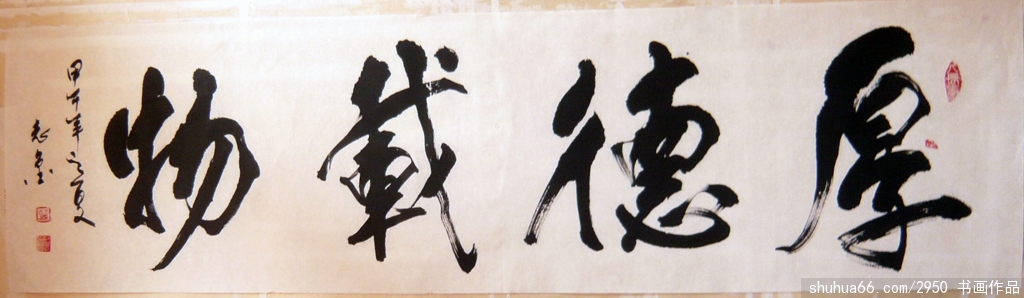 厚德載物
甲午年之夏
shuhua66.com/2950 书画作品